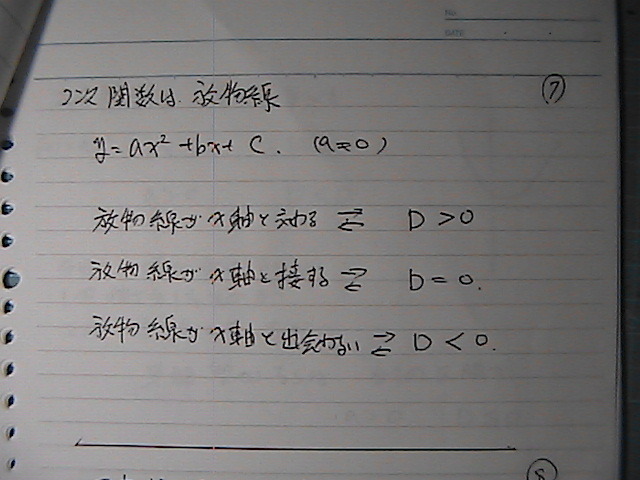 No.
DATE
⑦
2次関数は、放物線
y=ax²+bx+c. (a≠0)
放物線がx軸と交わる ⇄ D>0
放物線がx軸と接する ⇄ D=0.
放物線がx軸と出会わない ⇄ D<0.
⑧